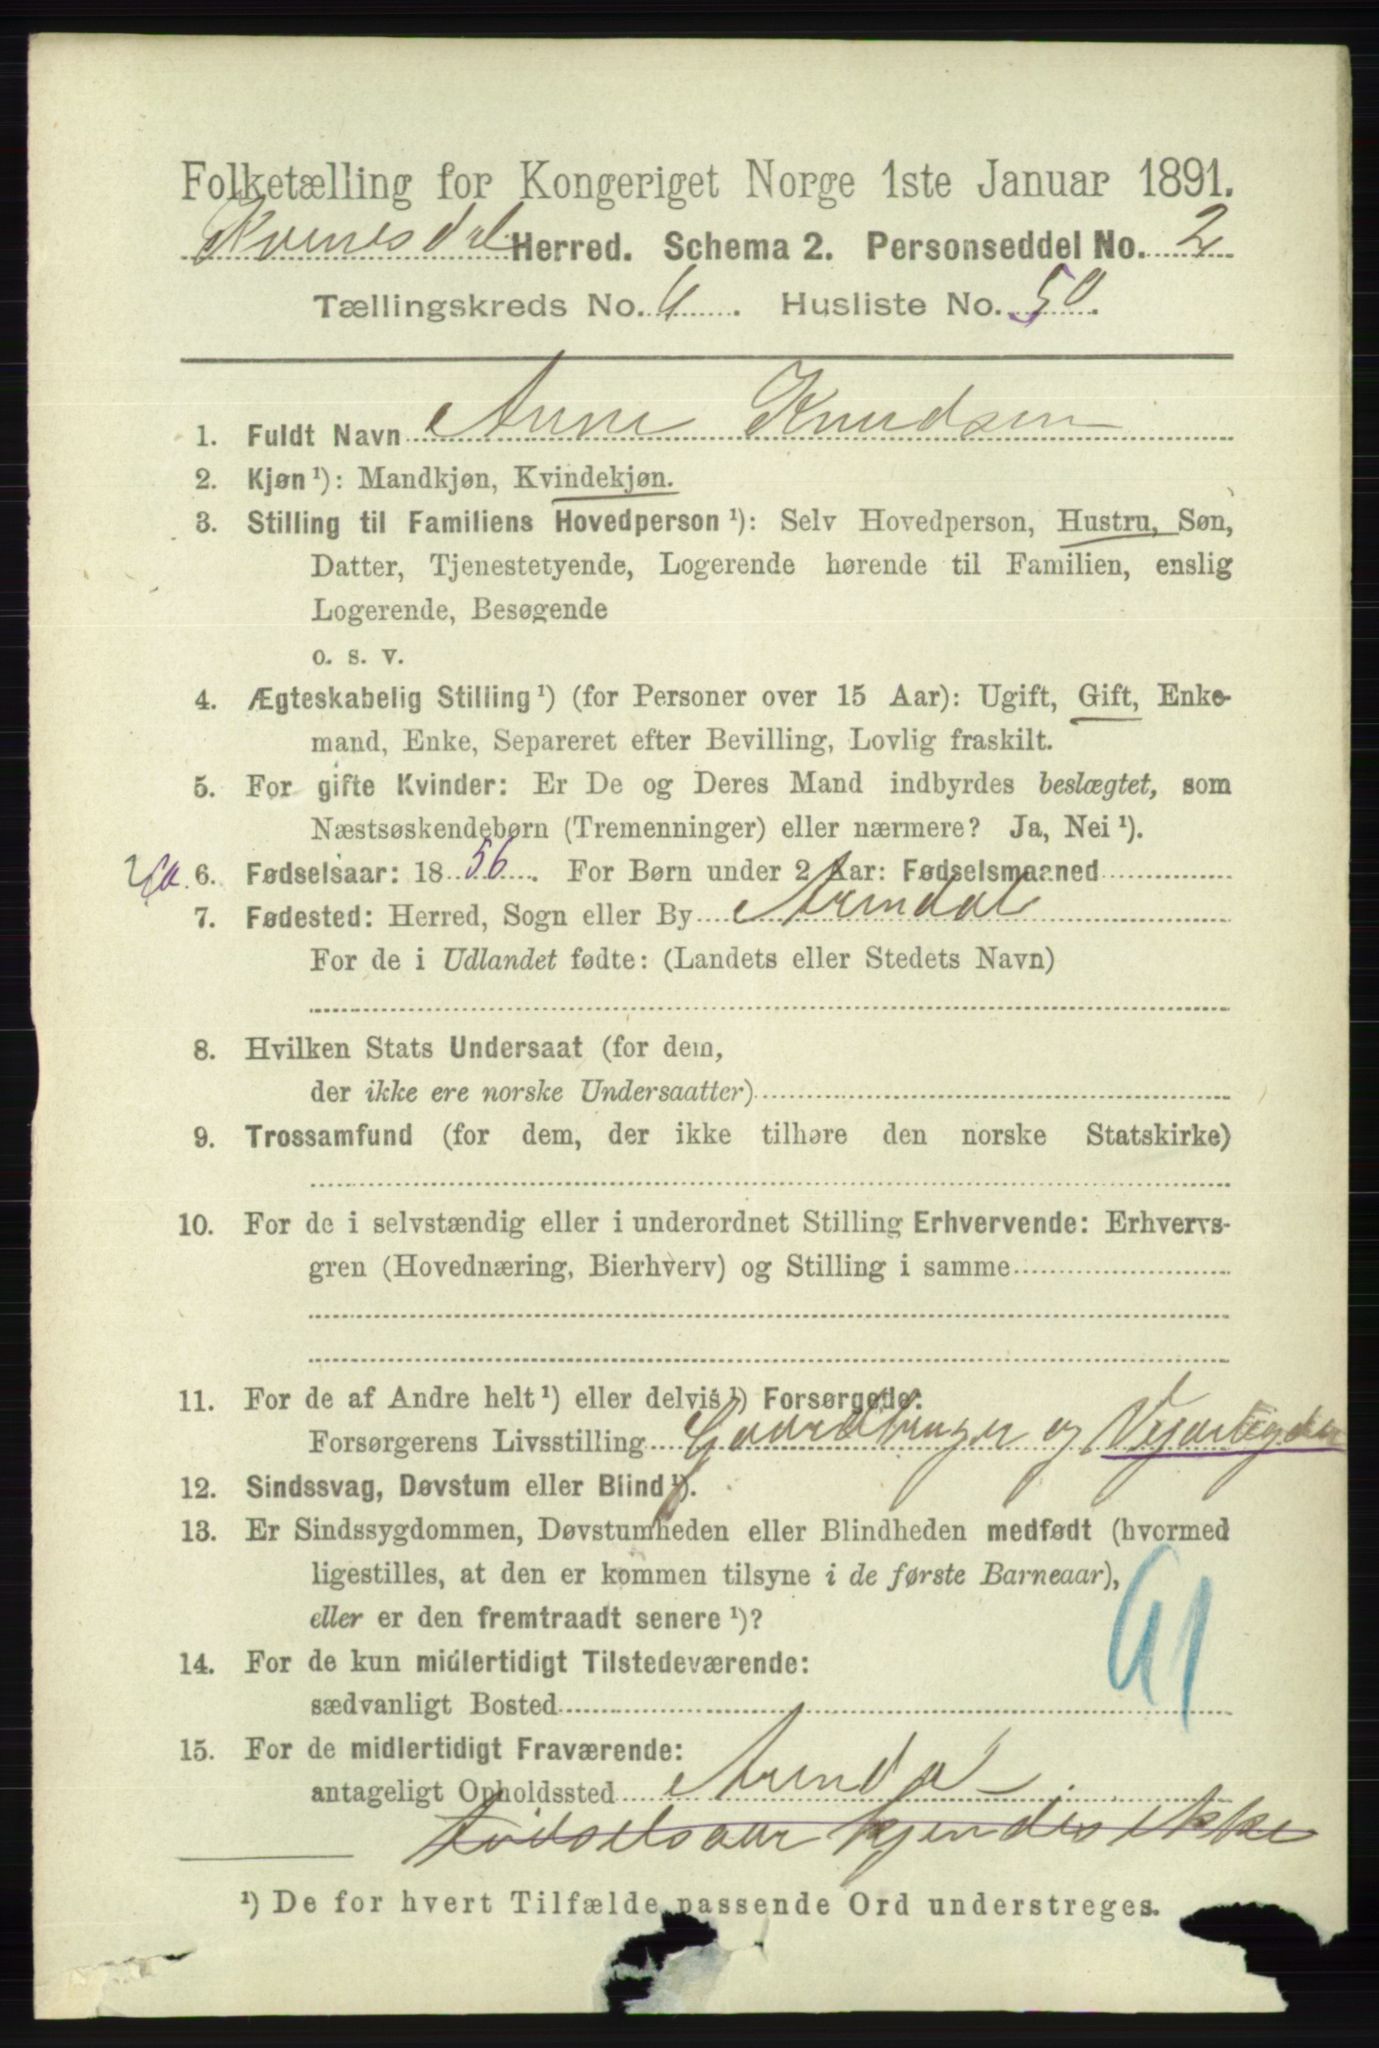 Folketælling for Kongeriget Norge 1ste Januar 1891.
Kvinesdal Herred. Schema 2. Personseddel No. 2
Tællingskreds No. 4. Husliste No. 50.
1. Fuldt Navn Anne Knudsen
2. Kjøn ¹): Mandkjøn, Kvindekjøn.
3. Stilling til Familiens Hovedperson ¹): Selv Hovedperson, Hustru, Søn,
Datter, Tjenestetyende, Logerende hørende til Familien, enslig
Logerende, Besøgende
o. s. v.
4. Ægteskabelig Stilling ¹) (for Personer over 15 Aar): Ugift, Gift, Enke-
mand, Enke, Separeret efter Bevilling, Lovlig fraskilt.
5. For gifte Kvinder: Er De og Deres Mand indbyrdes beslægtet, som
Næstsøskendebørn (Tremenninger) eller nærmere? Ja, Nei ¹).
ca. 6. Fødselsaar: 1856. For Børn under 2 Aar: Fødselsmaaned
7. Fødested: Herred, Sogn eller By Arendal
For de i Udlandet fødte: (Landets eller Stedets Navn)
8. Hvilken Stats Undersaat (for dem,
der ikke ere norske Undersaatter)
9. Trossamfund (for dem, der ikke tilhøre den norske Statskirke)
10. For de i selvstændig eller i underordnet Stilling Erhvervende: Erhvervs-
gren (Hovednæring, Bierhverv) og Stilling i samme
11. For de af Andre helt ¹) eller delvis ¹) Forsørgede:
Forsørgerens Livsstilling Gaardbruger og
12. Sindssvag, Døvstum eller Blind ¹).
13. Er Sindssygdommen, Døvstumheden eller Blindheden medfødt (hvormed
ligestilles, at den er kommen tilsyne i de første Barneaar),
eller er den fremtraadt senere ¹)?
14. For de kun midlertidigt Tilstedeværende:
sædvanligt Bosted
15. For de midlertidigt Fraværende:
antageligt Opholdssted Arendal
Fødselsaar kjendes ikke
¹) De for hvert Tilfælde passende Ord understreges.